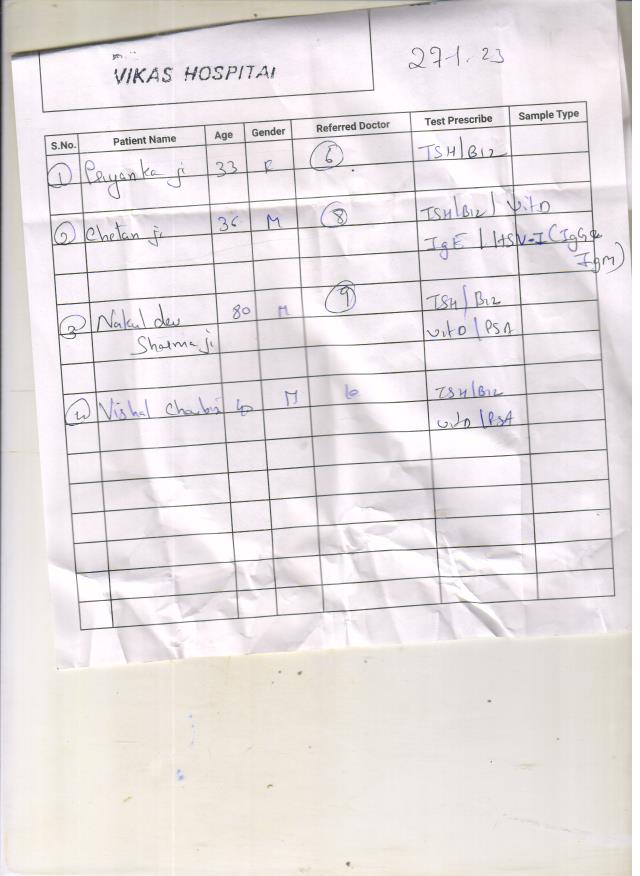 VIKAS HOSPITAL
27-1.23
S.No. Patient Name Age Gender Referred Doctor Test Prescribe Sample Type
1 Priyanka ji 33 F 6 TSH/B12
2 Chetan ji 36 M 8 TSH/B12/VitD
IgE/HSV-I (IgG &
IgM)
3 Nakul dev 80 M 9 TSH/B12
Sharma ji VitD/PSA
4 Vishal M TSH/B12
VitD/PSA